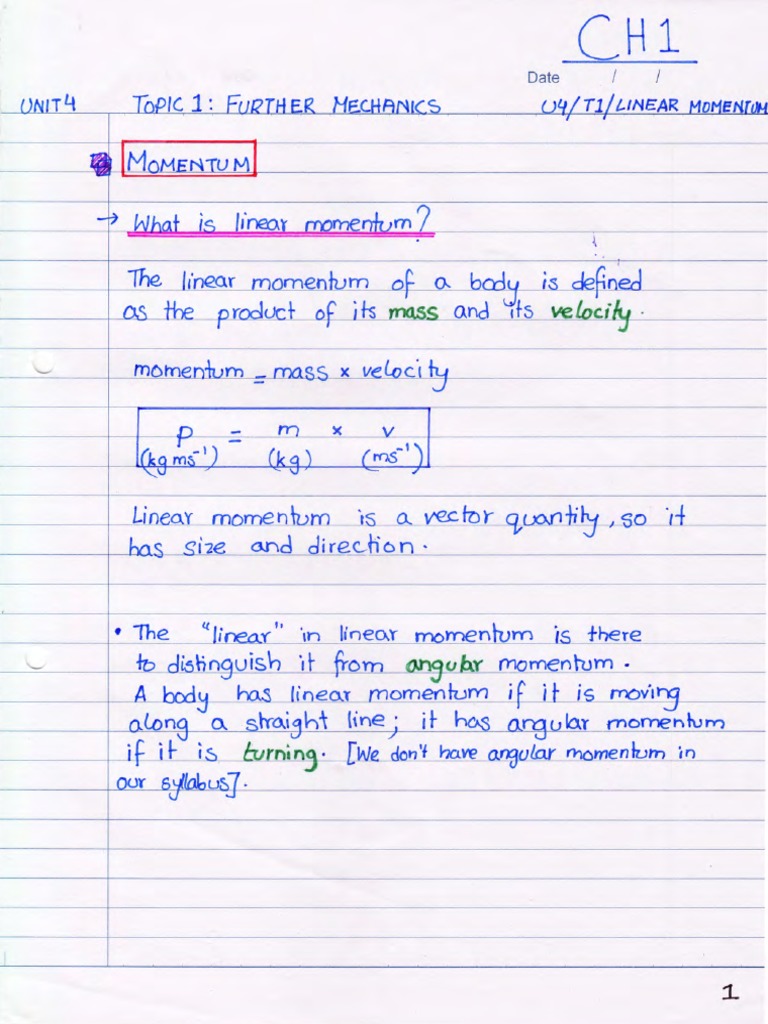 CH1
Date / /
UNIT 4 TOPIC 1: FURTHER MECHANICS U4/T1/LINEAR MOMENTUM
MOMENTUM
→ What is linear momentum?
The linear momentum of a body is defined
as the product of its mass and its velocity.
momentum = mass × velocity
p = m × v
(kg ms⁻¹) (kg) (ms⁻¹)
Linear momentum is a vector quantity, so it
has size and direction.
• The "linear" in linear momentum is there
to distinguish it from angular momentum.
A body has linear momentum if it is moving
along a straight line; it has angular momentum
if it is turning. [We don't have angular momentum in
our syllabus].
1